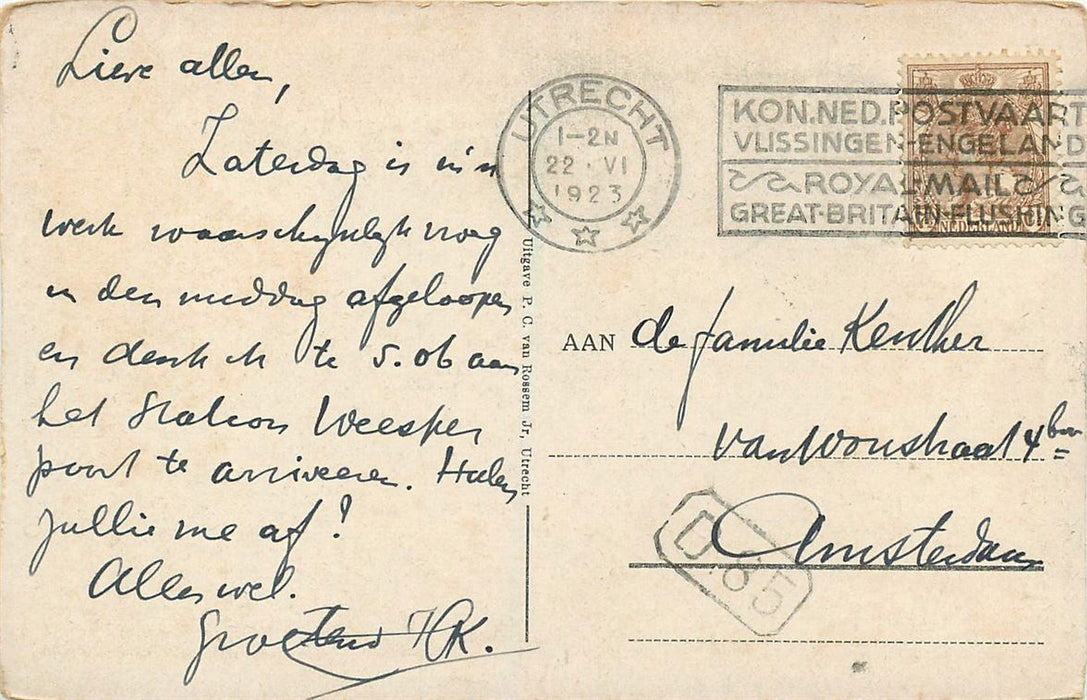 Lieve allen,
Zaterdag is m'n
werk waarschynlyk nog
in den middag afgeloopen
en denk ik te 5.06 aan
het Station Weesper
poort te arriveeren. Halen
jullie me af?
Alles wel.
Groetend HK.
Uitgave P. C. van Rossem Jr, Utrecht
UTRECHT
1-2N
22 · VI
1923
KON.NED.POSTVAART
VLISSINGEN-ENGELAND
ROYAL-MAIL
GREAT-BRITAIN-FLUSHING
NEDERLAND
AAN de familie Kenther
van Woustraat 4 bov
Amsterdam
D.85